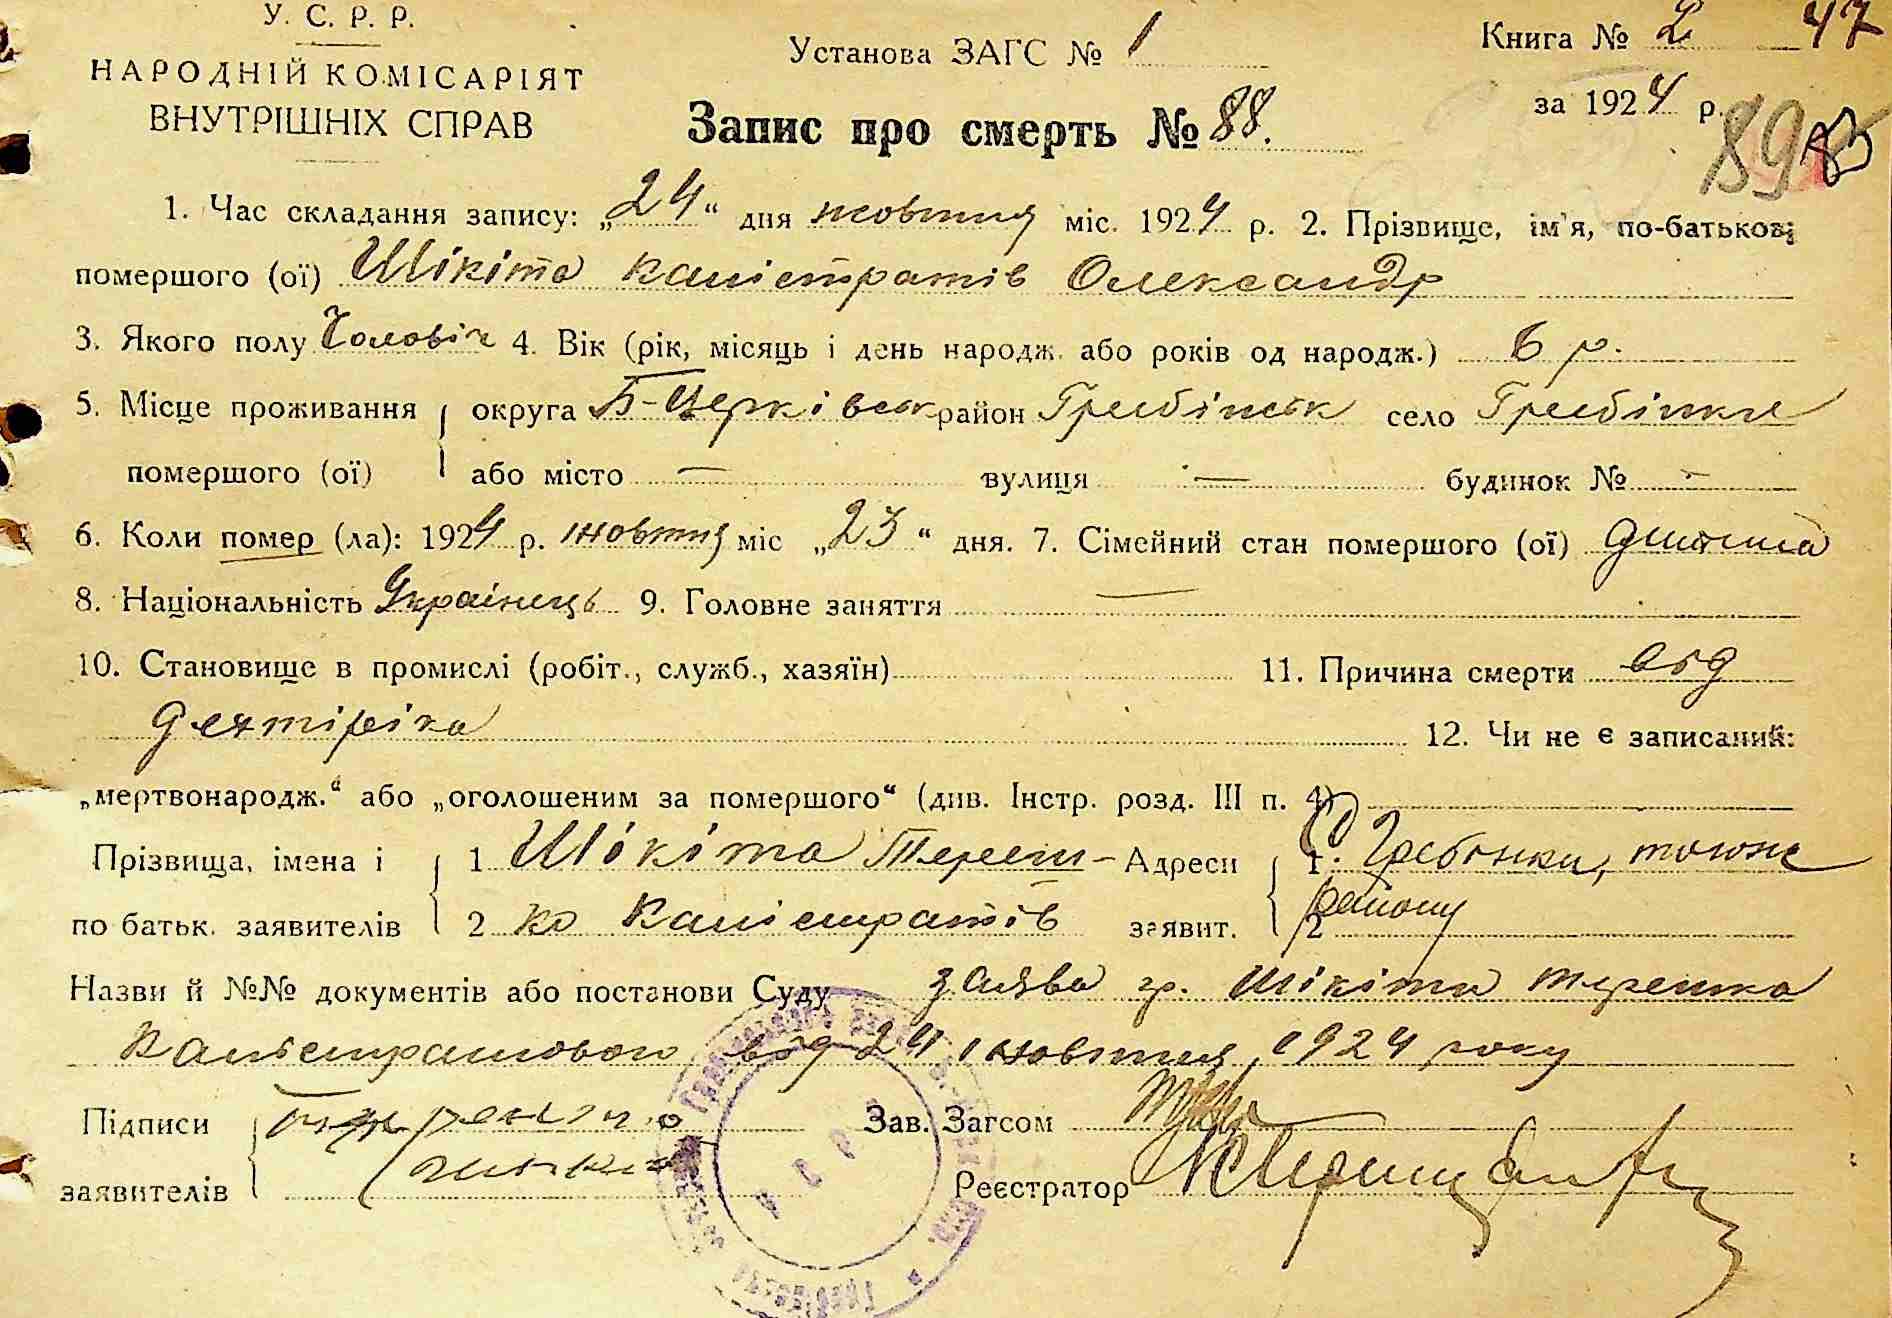 У. С. Р. Р.
НАРОДНІЙ КОМІСАРІЯТ
ВНУТРІШНІХ СПРАВ
Установа ЗАГС № 1
Книга № 2 47
за 1924 р.
Запис про смерть № 88.
89
1. Час складання запису: „24“ дня жовтня міс. 1924 р. 2. Прізвище, ім'я, по-батькові
помершого (ої) Шікіта Калістратів Олександр
3. Якого полу Чоловіч 4. Вік (рік, місяць і день народж. або років од народж.) 6 р.
5. Місце проживання округа Б-Церківськ район Гребінськ село Гребінки
помершого (ої) або місто — вулиця — будинок № —
6. Коли помер (ла): 1924 р. жовтня міс „23“ дня. 7. Сімейний стан помершого (ої) дитина
8. Національність Українець 9. Головне заняття —
10. Становище в промислі (робіт., служб., хазяїн) 11. Причина смерти від
дехтіріка
12. Чи не є записаний:
„мертвонародж.“ або „оголошеним за помершого“ (див. Інстр. розд. III п. 4)
Прізвища, імена і 1 Шікіта Тереш- Адреси 1. Гребінки, тогож
по батьк. заявителів 2 ко Калістратів заявит. 2 району
Назви й №№ документів або постанови Суду заява гр. Шікіти Терешка
Калістратового від 24 жовтня 1924 року
Підписи
заявителів
Зав. Загсом
Реєстратор